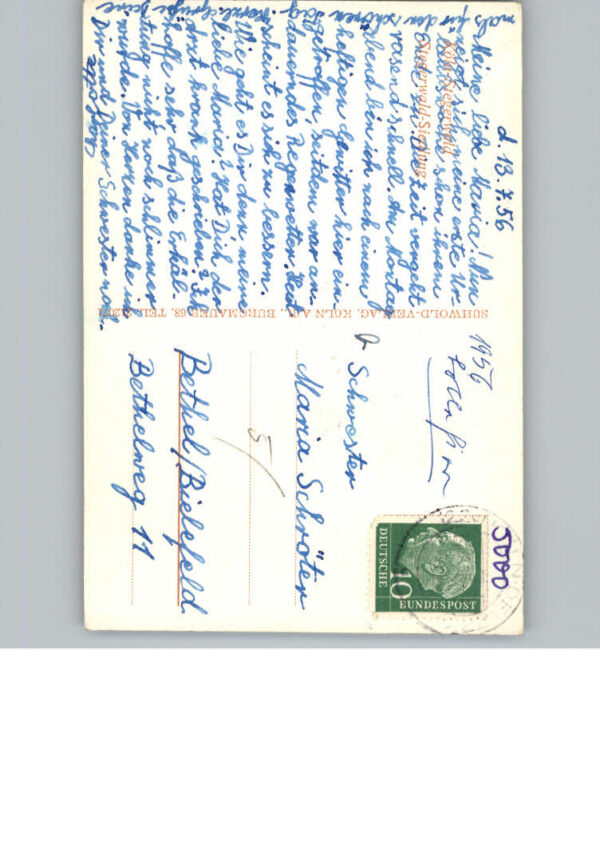 d. 13.7.56
Köln-Niehl
Niederwald-Siedlung
Meine liebe Maria! Nun
ist schon eine erste Ur-
die Zeit vergeht
rasend schnell. Am Montag
abend bin ich nach einem
heftigen Gewitter hier ein-
getroffen, seitdem war an-
dauerndes Regenwetter. Heut
scheint es sich zu bessern.
Wie geht es Dir denn meine
liebe Maria? Hat Dich der
Arzt krank geschrieben? Ich
hoffe sehr daß die Erkäl-
tung nicht noch schlimmer
wurde. Von Herzen danke ich
Dir und Deiner Schwester noch
mals für den schönen Tag. Herzl. Grüße Deine
SÜHWOLD-VERLAG, KÖLN A. RH., BURGMAUER 68, TEL.
1956
Schwester
Maria Schröter
5
Bethel/Bielefeld
Bethelweg 11
5000
DEUTSCHE
BUNDESPOST
10